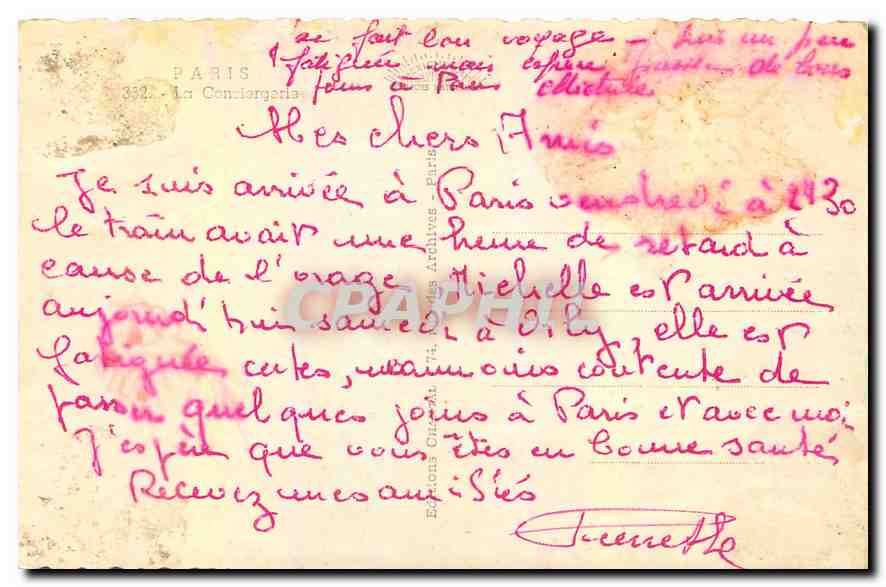 ai fait bon voyage - suis un peu
fatiguée mais espère passer de bons
jours à Paris Michelle
PARIS
332. - La Conciergerie
Mes chers Amis
Je suis arrivée à Paris vendredi à 21h30
le train avait une heure de retard à
cause de l'orage. Michelle est arrivée
aujourd'hui samedi à Orly, elle est
fatiguée certes, néanmoins contente de
passer quelques jours à Paris et avec moi
J'espère que vous êtes en bonne santé,
Recevez mes amitiés
Pierrette
CPAPHIL
Editions 74, des Archives - Paris